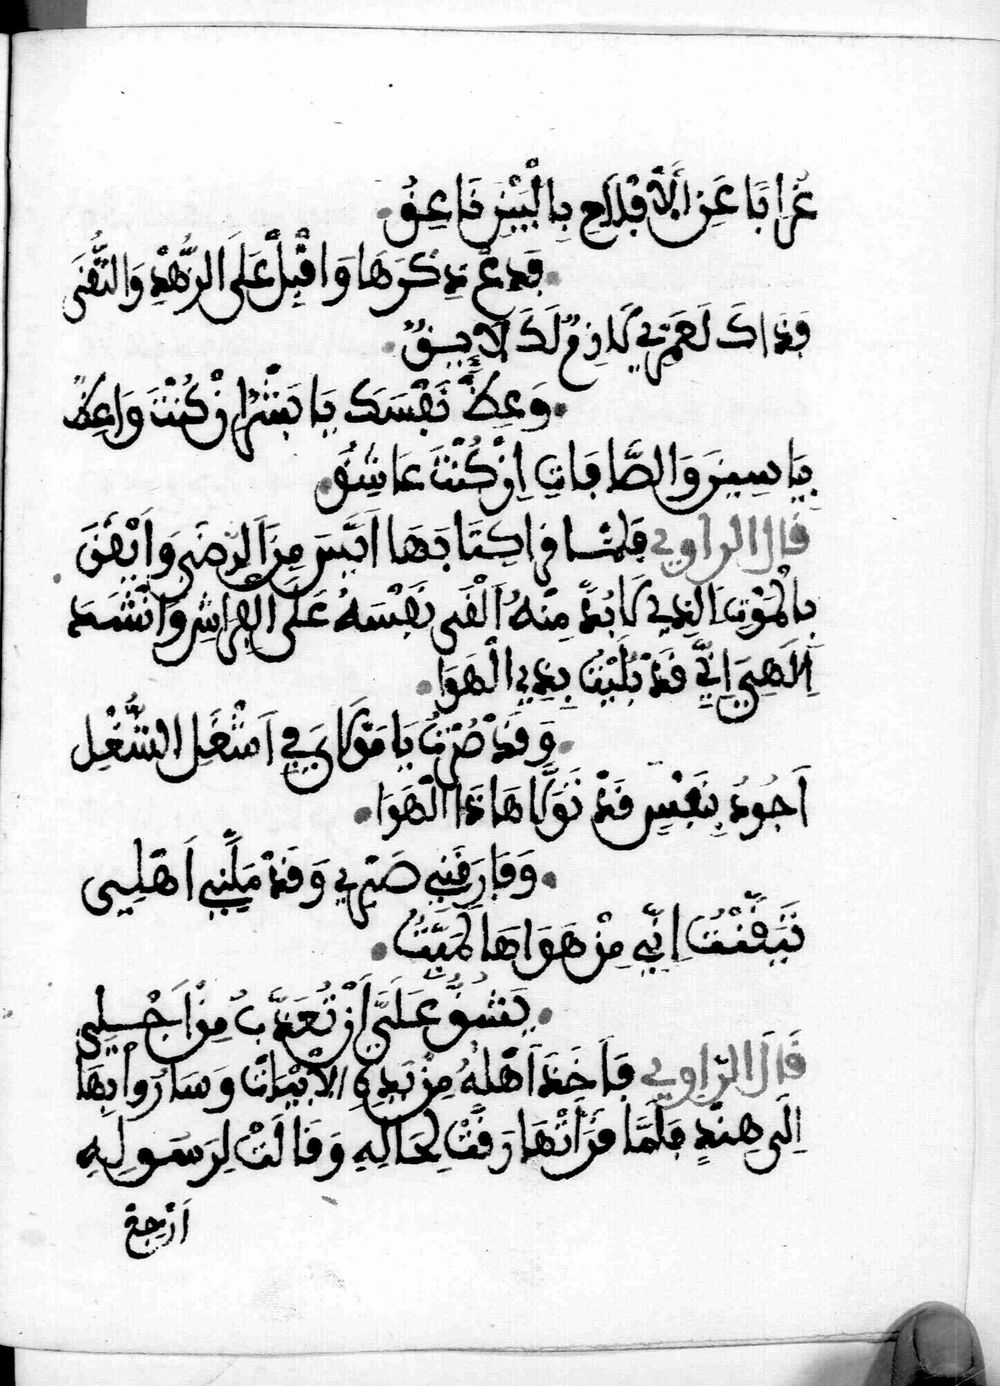 غُرابًا عَنِ الأَفْلَاحِ بِالْبَيْنِ نَاعِقُ
فَدَعْ ذِكْرَهَا وَاقْبِلْ عَلَى الزُّهْدِ وَالتُّقَى
فَذَاكَ لَعَمْرِي لَازِمٌ لَكَ لَايِقُ
وَعِظْ نَفْسَكَ يَا بِشْرُ إِنْ كُنْتَ وَاعِظً
بِيَاسِينَ وَالصَّافَاتِ إِنْ كُنْتَ عَاشِقُ
قَالَ الراوِي فَلَمَّا قرا كِتَابَهَا اَيِسَ مِنَ الرِّضَى وَاَيْقَنَ
بِالْمَوْتِ الَّذِي لَا بُدَّ مِنْهُ اَلْقَى نَفْسَهُ عَلَى الفِرَاشِ وَانْشَدَ
اِلَهِي اِنِّي قَدْ بُلِيْتُ بِذِي الْهَوَا
وَقَدْ صُرْتُ يَا مَوْلَايَ فِي اَشْغَلِ الشُّغْلِ
اَجُودُ بِنَفْسٍ قَدْ تَوَلَّاهَا ذَا الْهَوَا
وَفَارَقَنِي صَبْرِي وَقَدْ مَلَّنِي اَهْلِي
تَيَقَّنْتُ اِنِّي مِنْ هَوَاهَا لَمَيِّتُ
يَشُقُّ عَلَيَّ أَنْ تُعَذَّبَ مِنْ اَجْلِي
قَالَ الرَّاوِي فَاَخَذَ اَهْلُهُ مِنْ يَدِهِ الأَبْيَاتَ وَسَارُوا بِهَا
اِلَى هِنْدٍ فَلَمَّا قَرَأَتْهَا رَقَّتْ لِحَالِهِ وَقَالَتْ لِرَسُولِهِ
اَرْجِعْ